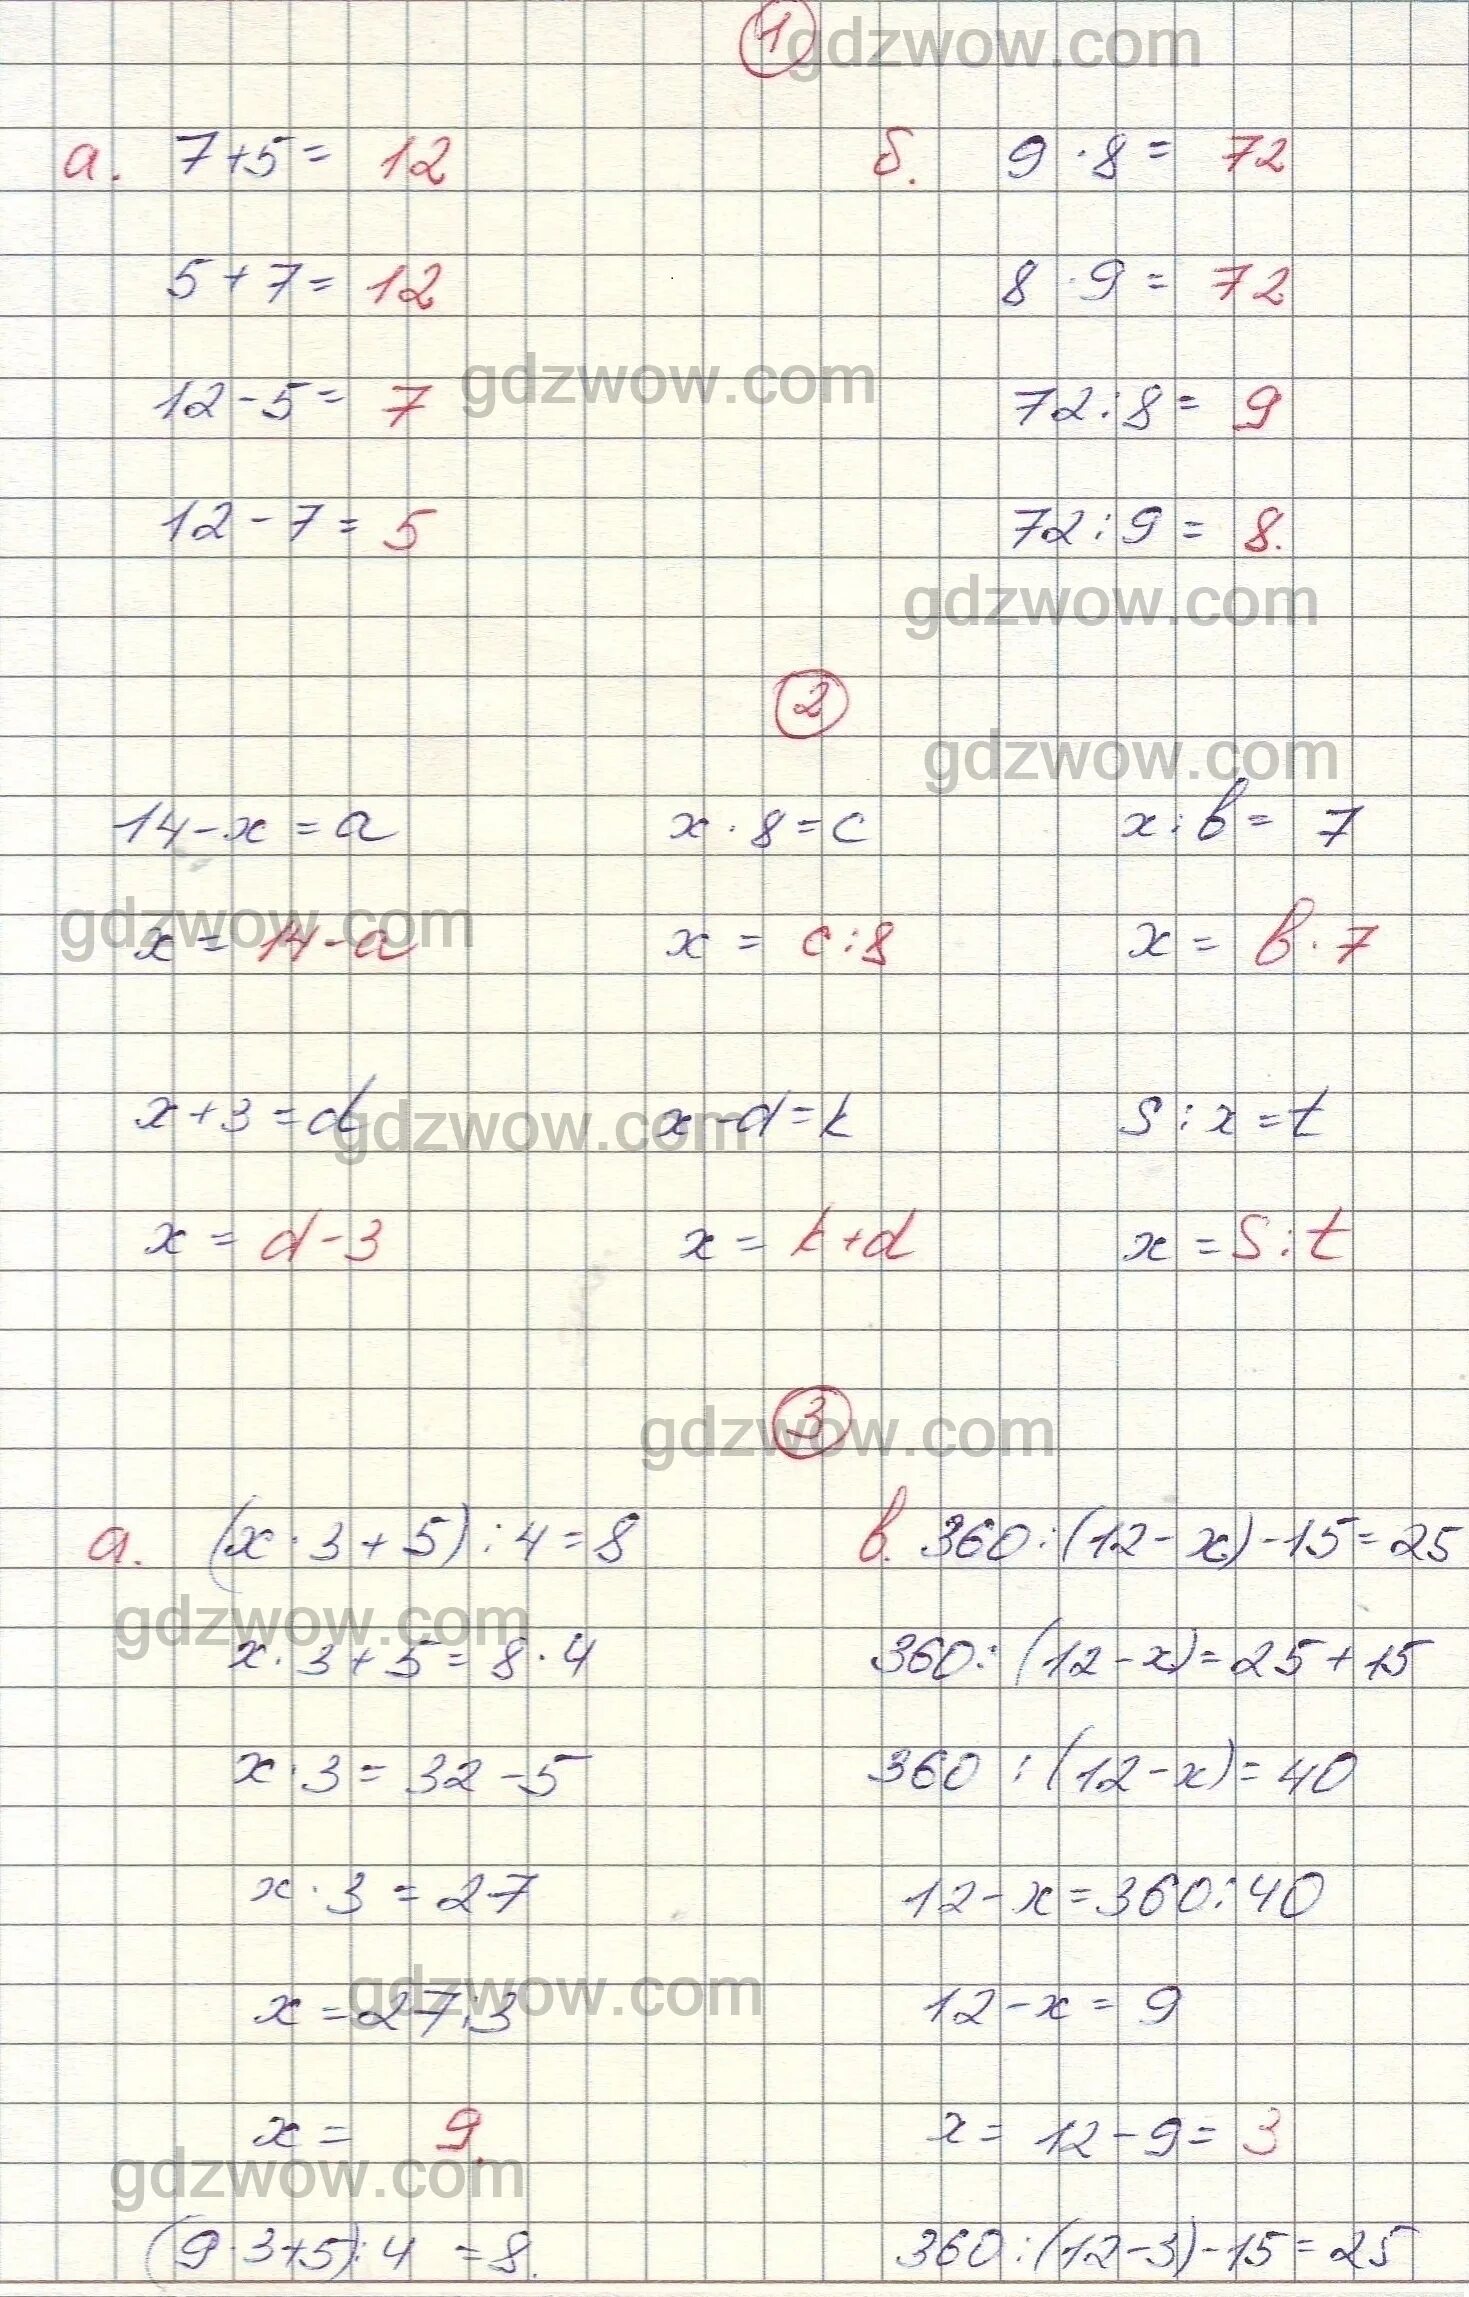 1
gdzwow.com
а. 7+5= 12
б. 9·8= 72
5+7= 12
8·9= 72
12-5= 7
gdzwow.com
72:8= 9
12-7= 5
72:9= 8.
gdzwow.com
2
gdzwow.com
14-x=a
x·8=c
x:b= 7
gdzwow.com
x= 14-a
x= c:8
x= b·7
x+3=d
gdzwow.com
x-d=k
s:x=t
x= d-3
x= k+d
x=s:t
3
gdzwow.com
а. (x·3+5):4=8
в. 360:(12-x)-15=25
gdzwow.com
x·3+5=8·4
360:(12-x)=25+15
x·3=32-5
360:(12-x)=40
x·3=27
12-x=360:40
gdzwow.com
x=27:3
12-x=9
x= 9.
x= 12-9= 3
gdzwow.com
(9·3+5):4=8.
360:(12-3)-15=25